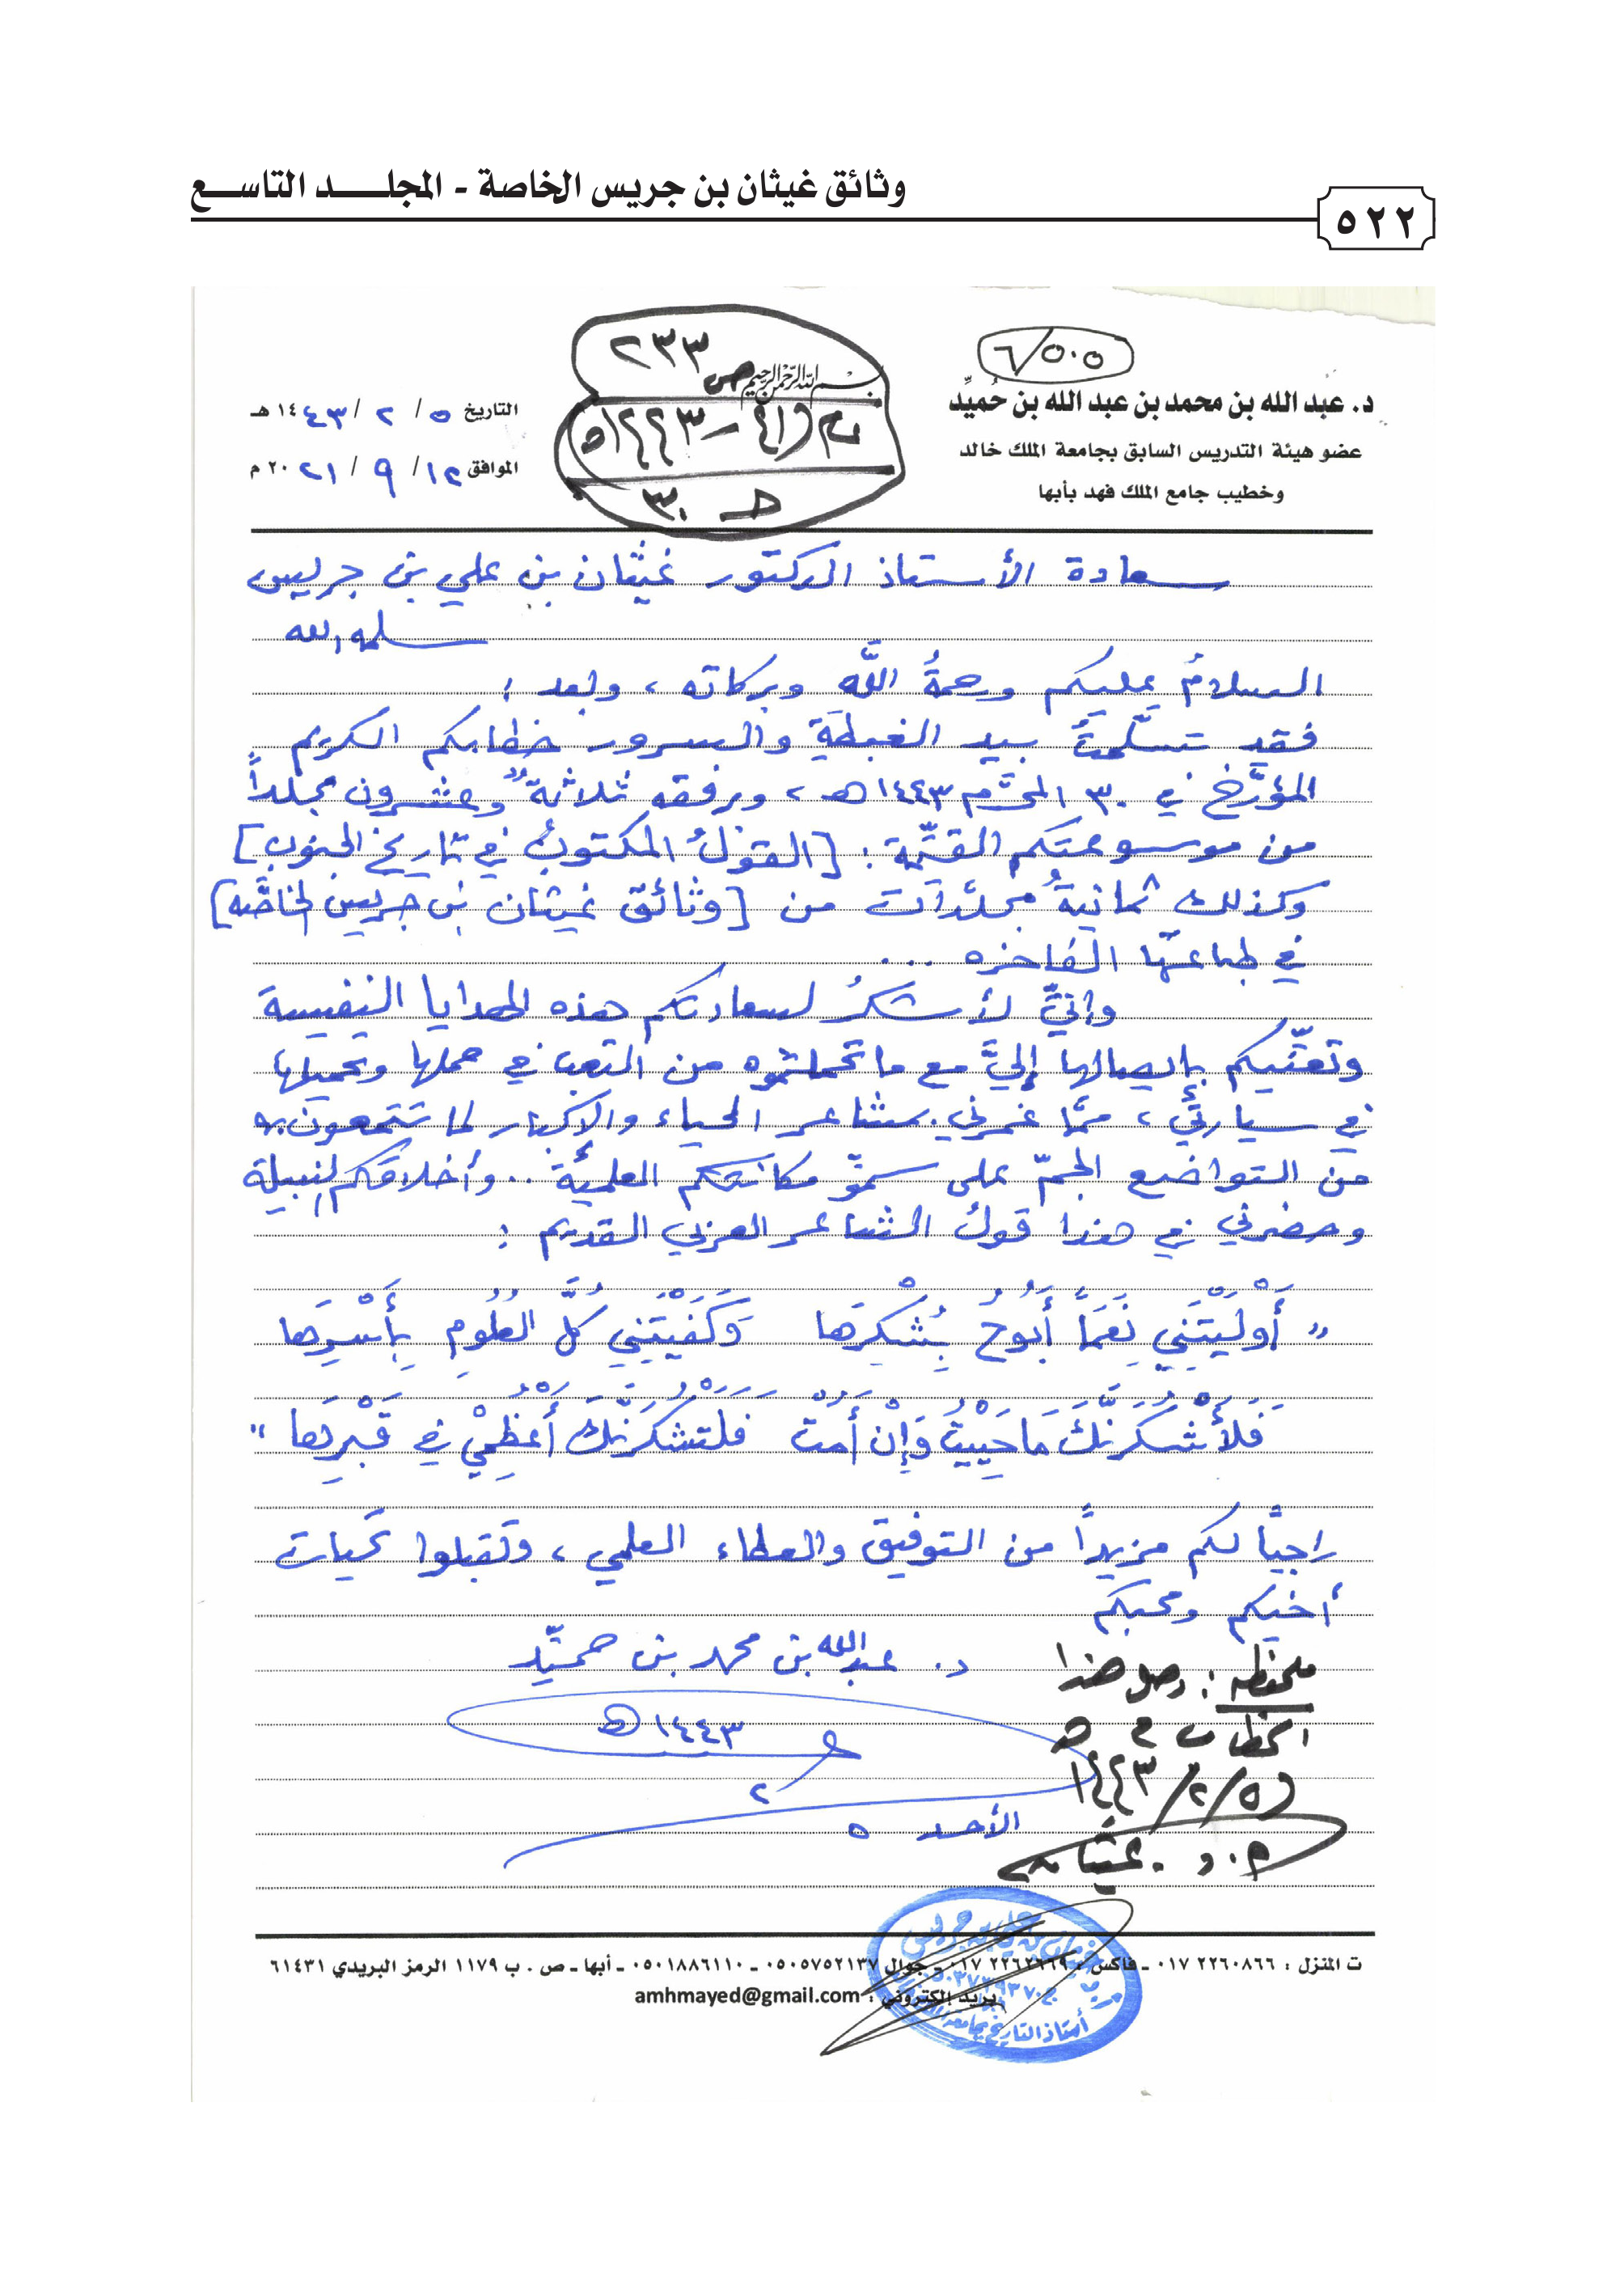 وثائق غيثان بن جريس الخاصة - المجلــــد التاســـع
٥٢٢
٦/٥٠٥
د. عبد الله بن محمد بن عبد الله بن حُميِّد
عضو هيئة التدريس السابق بجامعة الملك خالد
وخطيب جامع الملك فهد بأبها
ص ٢٣٣
بسم الله الرحمن الرحيم
التاريخ ٥ / ٢ / ١٤٤٣ هـ
الموافق ١٢ / ٩ / ٢٠٢١ م
سعادة الأستاذ الدكتور غيثان بن علي بن جريس
سلمه الله
السلامُ عليكم ورحمةُ اللَّه وبركاته ، وبعد :
فقد تسلّمتُ بيد الغبطة والسرور خطابكم الكريم
المؤرَّخ في ٣٠ المحرَّم ١٤٤٣هـ ، وبرفقه ثلاثةٌ وعشرون مجلداً
من موسوعتكم القيّمة : [القولُ المكتوبُ في تاريخ الجنوب]
وكذلك ثمانيةُ مجلدات من [وثائق غيثان بن جريس الخاصَّه]
في طباعتها الفاخره ...
وإنيِّ لأشكرُ لسعادتكم هذه الهدايا النفيسة
وتعنّيكم بإيصالها إليَّ مع ما تحملتموه من التعب في حملها وتحميلها
في سيارتي ، ممَّا غمرني بمشاعر الحياء والإكبار لما تتمتعون به
من التواضع الجمّ على سموّ مكانتكم العلميَّة .. وأخلاقكم النبيلة
وحضرني في هذا قولُ الشاعر العربي القديم :
" أَوْلَيْتَنِي نِعَمَاً أَبُوحُ بِشُكْرِهَا وَكَفَيْتَنِي كُلَّ الأُمُورِ بِأَسْرِهَا
فَلأَشْكُرَنَّكَ مَا حَيِيْتُ وَإِنْ أَمُتْ فَلَتَشْكُرَنَّكَ أَعْظُمِيْ في قَبْرِهَا "
راجياً لكم مزيداً من التوفيق والعطاء العلمي ، وتقبلوا تحيات
أخيكم ومحبكم
د. عبدالله بن محمد بن حميِّد
١٤٤٣ هـ
٢
الأحد ٥
ملحوظه : وصل هذا
الخطاب في
٥/٢/١٤٤٣
أ.د. غيثان
ت المنزل : ٢٢٦٠٨٦٦ ٠١٧ ـ فاكس : ٢٢٦٢٦٦٩ ٠١٧ ـ جوال ٠٥٠٥٧٥٢١٣٧ ـ ٠٥٠١٨٨٦١١٠ ـ أبها ـ ص . ب ١١٧٩ الرمز البريدي ٦١٤٣١
بريد إلكتروني : amhmayed@gmail.com
أستاذ التاريخ بجامعة